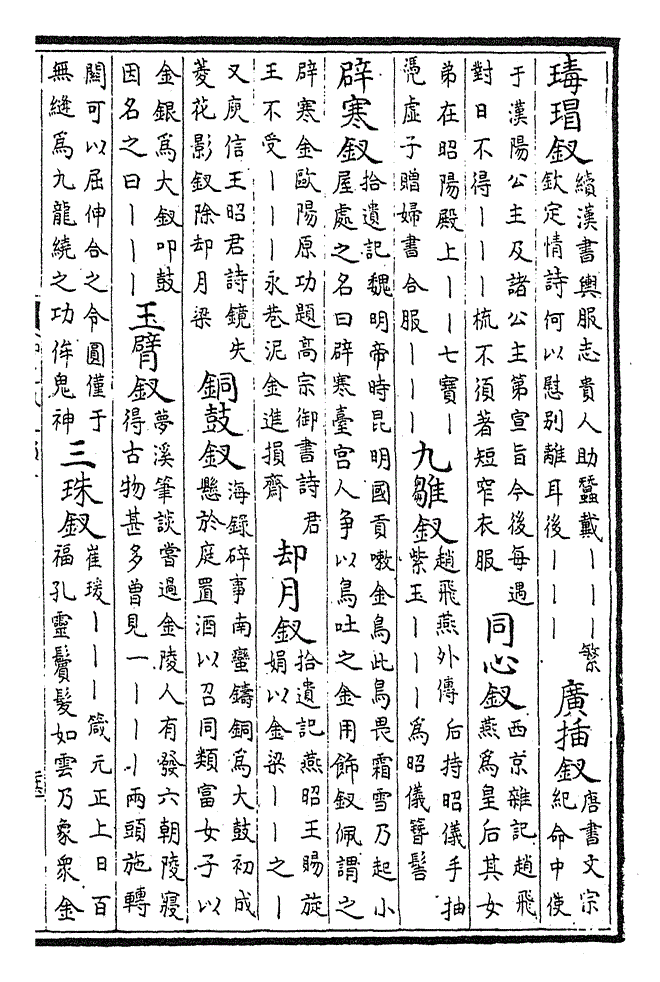 瑇瑁釵
續漢書輿服志貴人助蠶戴丨丨丨繁
欽定情詩何以慰別離耳後丨丨丨
廣插釵
唐書文宗
紀命中使
于漢陽公主及諸公主第宣旨今後每遇
對日不得丨丨丨梳不須著短窄衣服
同心釵
西京雜記趙飛
燕爲皇后其女
弟在昭陽殿上丨丨七寶丨
憑虛子贈婦書合服丨丨丨
九雛釵
趙飛燕外傳后持昭儀手抽
紫玉丨丨丨爲昭儀簪髻
辟寒釵
拾遺記魏明帝時昆明國貢嗽金鳥此鳥畏霜雪乃起小
屋處之名曰辟寒臺宫人爭以鳥吐之金用飾釵佩謂之
辟寒金歐陽原功題高宗御書詩君
王不受丨丨丨永巷泥金進損齋
却月釵
拾遺記燕昭王賜旋
娟以金梁丨丨之丨
又庾信王昭君詩鏡失
菱花影釵除却月梁
銅鼓釵
海錄碎事南蠻鑄銅爲大鼓初成
懸於庭置酒以召同類富女子以
金銀爲大釵叩鼓
因名之曰丨丨丨
玉臂釵
夢溪筆談嘗過金陵人有發六朝陵寢
得古物甚多曾見一丨丨丨兩頭施轉
關可以屈伸合之令圓僅于
無縫爲九龍繞之功侔鬼神
三珠釵
崔瑗丨丨丨箴元正上日百
福孔靈鬢髮如雲乃象衆金